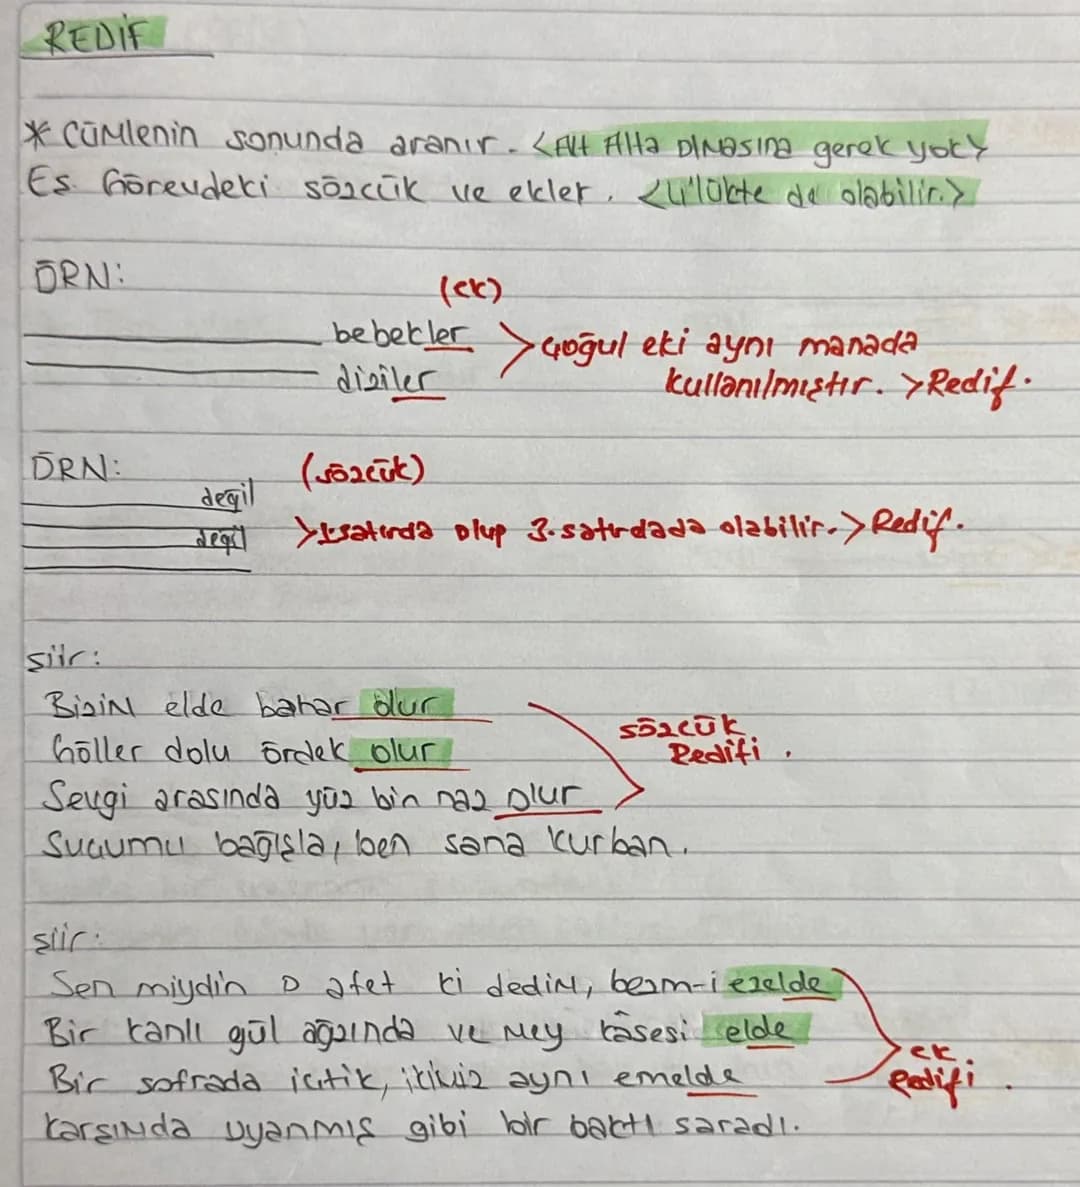 REDİF
* CÜMlenin sonunda aranır. <Alt Alta Olmasına gerek yok>
Eş Görevdeki sözcük ve ekler. <4'lükte de olabilir.>
ÖRN:
(ek)
bebekler
diziler
>çoğul eki aynı manada
kullanılmıştır. >Redif.
ÖRN:
(sözcük)
değil
değil
>1.satırda olup 3.satırdada olabilir.>Redif.
şiir:
Bizim elde bahar olur
Göller dolu ördek olur
Sevgi arasında yüz bin naz olur
Suçumu bağışla, ben sana kurban.
sözcük
Redifi.
şiir:
Sen miydin o afet ki dedim, bezm-i ezelde
Bir kanlı gül ağzında ve mey kâsesi elde
Bir sofrada içtik, ikimiz aynı emelde
Karşımda uyanmış gibi bir baktı sarardı.
ek
Redifi.